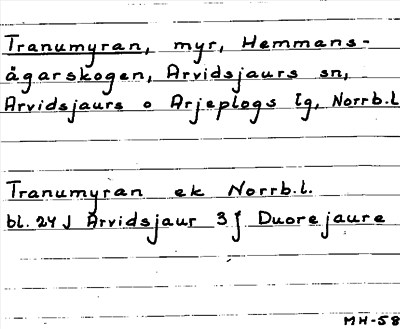 Tranumyran, myr, Hemmans-
ägarskogen, Arvidsjaurs sn,
Arvidsjaurs o Arjeplogs lg, Norrb.l
Tranumyran ek Norrb.l.
bl. 24 J Arvidsjaur 3 j Duorejaure
MH-58